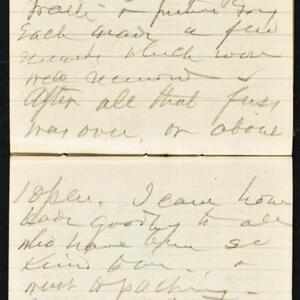 Each made a few
remarks which were
well received
After all that fuss
was over, or about
1 o'pm. I came home
bade goodby to all
who have been so
kind to me, &
went to packing.